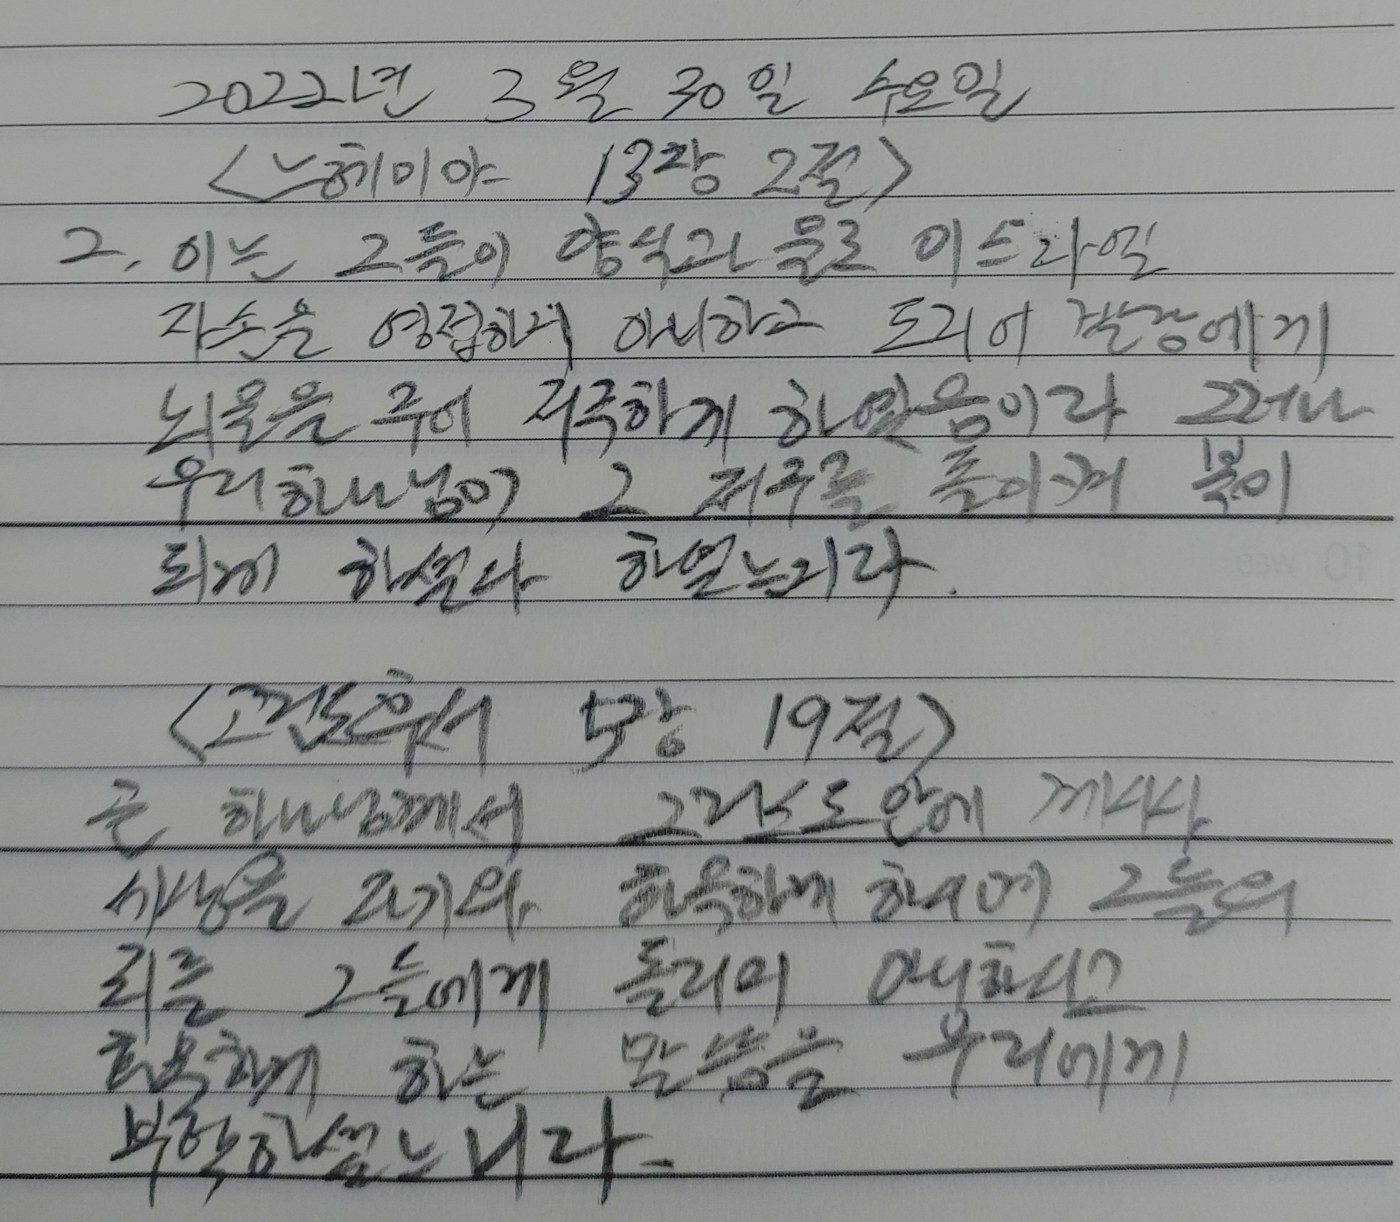 2022년 3월 30일 수요일
<느헤미야 13장 2절>
2. 이는 그들이 양식과 물로 이스라엘
자손을 영접하지 아니하고 도리어 발람에게
뇌물을 주어 저주하게 하였음이라 그러나
우리 하나님이 그 저주를 돌이켜 복이
되게 하셨다 하였느니라.
<고린도후서 5장 19절>
곧 하나님께서 그리스도 안에 계시사
세상을 자기와 화목하게 하시며 그들의
죄를 그들에게 돌리지 아니하시고
화목하게 하는 말씀을 우리에게
부탁하셨느니라.